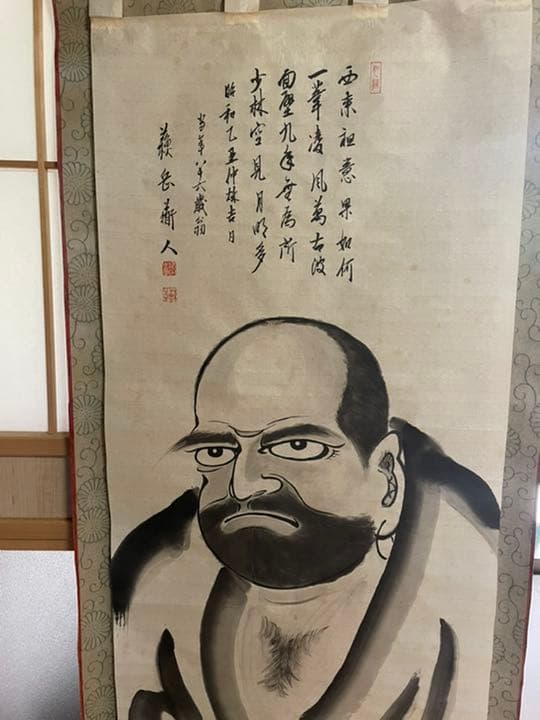 西來祖意果如何
一葦凌風萬古波
面壁九年無為所
少林空見月明多
昭和乙亥仲吉日
当年八十六歳翁
岳人